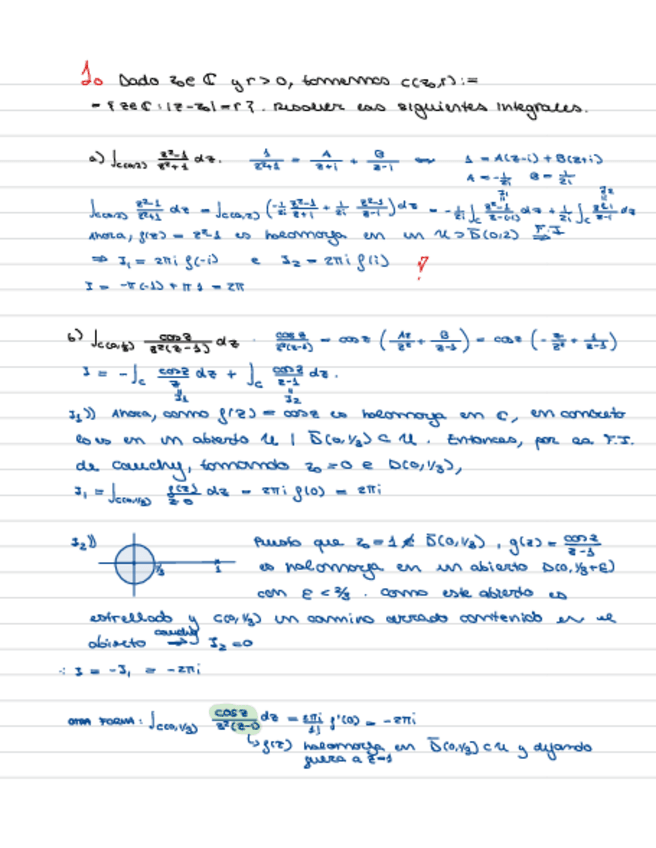 1. Dado z₀ ∈ ℂ y r > 0, tomemos C(z₀,r) :=
= {z ∈ ℂ : |z - z₀| = r}. Resolver las siguientes integrales.
a) ∫_{C(0,2)} (z²-1)/(z²+1) dz. 1/(z²+1) = A/(z+i) + B/(z-i) 1 = A(z-i) + B(z+i)
A = -1/2i B = 1/2i
∫_{C(0,2)} (z²-1)/(z²+1) dz = ∫_{C(0,2)} (-1/2i (z²-1)/(z+i) + 1/2i (z²-1)/(z-i)) dz = -1/2i ∫_C (z²-1)/(z-(-i)) dz + 1/2i ∫_C (z²-1)/(z-i) dz
I₁ I₂
Ahora, f(z) = z²-1 es holomorfa en un U ⊃ D̄(0,2) ⇒ F.I.
⇒ I₁ = 2πi f(-i) e I₂ = 2πi f(i)
I = -π(-1) + π 1 = 2π
b) ∫ cos z/(z²(z-1)) dz . cos z/(z²(z-1)) = cos z (Az/z² + B/(z-1)) = cos z (-z/z² + 1/(z-1))
I = -∫_C cos z/z dz + ∫_C cos z/(z-1) dz.
I₁ I₂
I₁)) Ahora, como f(z) = cos z es holomorfa en ℂ, en concreto
lo es en un abierto U | D̄(0,1/3) ⊂ U. Entonces, por la F.I.
de Cauchy, tomando z₀ = 0 e D(0,1/3),
I₁ = ∫_{C(0,1/3)} f(z)/(z-0) dz = 2πi f(0) = 2πi
I₂)) Puesto que z₀ = 1 ∉ D̄(0,1/3), g(z) = cos z/(z-1)
1/3 1
es holomorfa en un abierto D(0,1/3+ε)
con ε < 2/3. Como este abierto es
estrellado y C(0,1/3) un camino cerrado contenido en el
abierto ⇒ Cauchy I₂ = 0
∴ I = -I₁ = -2πi
OTRA FORMA: ∫_{C(0,1/3)} cos z/(z²(z-1)) dz = 2πi/1! f'(0) = -2πi
↳ f(z) holomorfa en D̄(0,1/3) ⊂ U y dejando
fuera a z=1